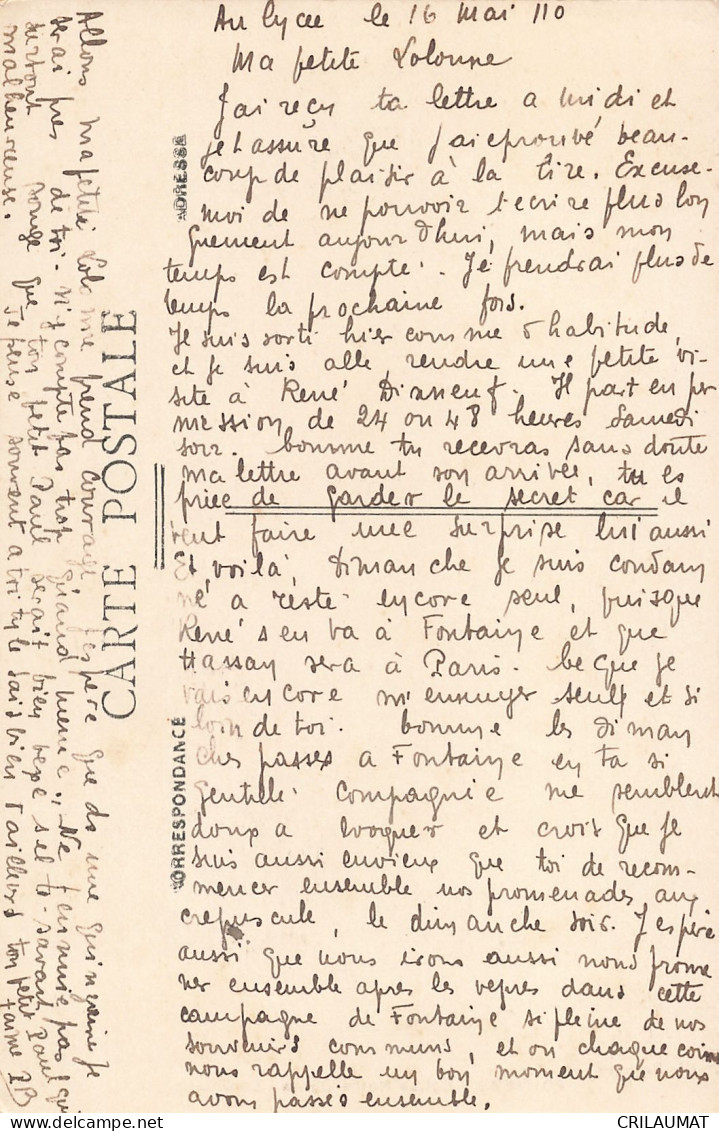 Au lycée le 16 Mai 110
Ma petite Lolonne
J'ai reçu ta lettre a midi et
je t'assure que j'ai eprouvé beau-
coup de plaisir à la lire. Excuse-
moi de ne pouvoir t'ecrire plus lon
guement aujourd'hui, mais mon
temps est compté. Je prendrai plus de
temps la prochaine fois.
Je suis sorti hier comme d habitude,
et je suis allé, rendre une petite vi-
site à René Dianneuf. Il part en per
mission, de 24 ou 48 heures Samedi
soir. Comme tu recevras sans doute
ma lettre avant son arrivée, tu es
priée de garder le secret car il
veut faire une surprise lui aussi
Et, voilà, Dimanche je suis condam
né a resté encore seul, puisque
René s'en va à Fontaine et que
Hassan sera à Paris. Ce que je
vais encore m'ennuyer seul et si
loin de toi. Comme les diman
ches passés a Fontaine en ta si
gentille compagnie me semblent
doux a evoquer et crois que je
suis aussi envieux que toi de recom-
mencer ensemble nos promenades au
crepuscule, le dimanche soir. J'espère
aussi que nous irons aussi nous prome
ner ensemble apres les vepres dans cette
campagne de Fontaine si pleine de nos
souvenirs communs, et ou chaque coin
nous rappelle un bon moment que nous
avons passés ensemble.
Allons ma petite Lolonne prend courage j'espère que dans une quinzaine je
serai pres de toi. N'y compte pas trop quand meme. Ne t'ennuie pas
surtout songe que ton petit Paul serait bien vexé s'il te savait
malheureuse. Je pense souvent a toi tu le sais bien d'ailleurs ton petit Paul qui
t'aime PB
CARTE POSTALE
ADRESSE
CORRESPONDANCE
CRILAUMAT